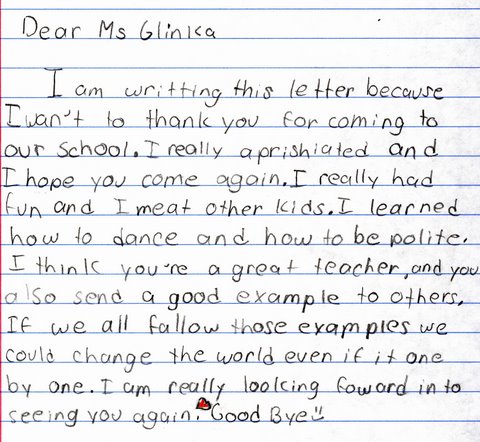 Dear Ms Glinka
I am writting this letter because
I wan't to thank you for coming to
our School. I really aprishiated and
I hope you come again. I really had
fun and I meat other kids. I learned
how to dance and how to be polite.
I think you're a great teacher, and you
also send a good example to others.
If we all fallow those examples we
could change the world even if it one
by one. I am really looking foward in to
seeing you again. Good Bye